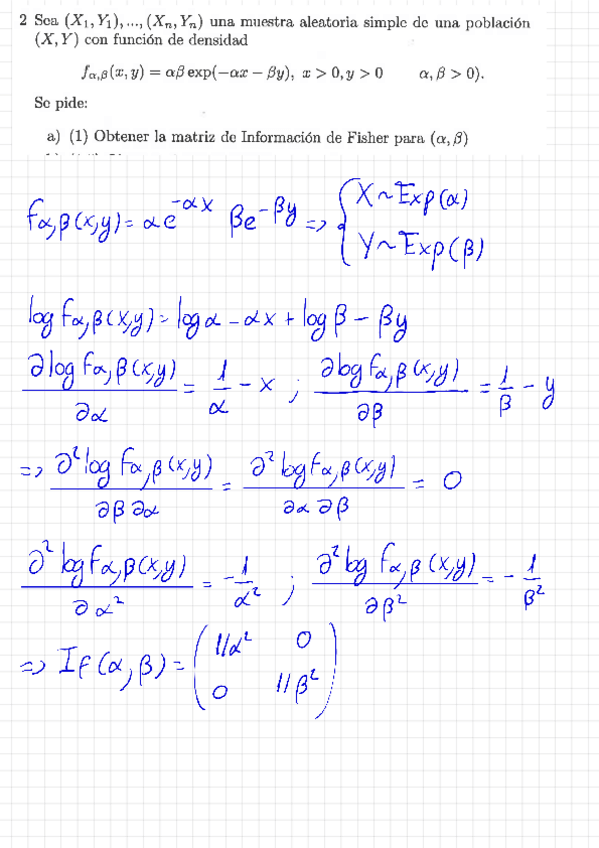 2 Sea (X₁, Y₁), ..., (Xₙ, Yₙ) una muestra aleatoria simple de una población
(X, Y) con función de densidad
f_{α,β}(x, y) = αβ exp(−αx − βy), x > 0, y > 0 α, β > 0).
Se pide:
a) (1) Obtener la matriz de Información de Fisher para (α, β)
f_{α,β}(x,y) = αe^{-αx} βe^{-βy} => { X ~ Exp(α)
Y ~ Exp(β)
log f_{α,β}(x,y) = log α - αx + log β - βy
∂log f_{α,β}(x,y)/∂α = 1/α - x ; ∂log f_{α,β}(x,y)/∂β = 1/β - y
=> ∂²log f_{α,β}(x,y)/∂β∂α = ∂²log f_{α,β}(x,y)/∂α∂β = 0
∂²log f_{α,β}(x,y)/∂α² = -1/α² ; ∂²log f_{α,β}(x,y)/∂β² = -1/β²
=> If(α,β) = ( 1/α² 0
0 1/β² )